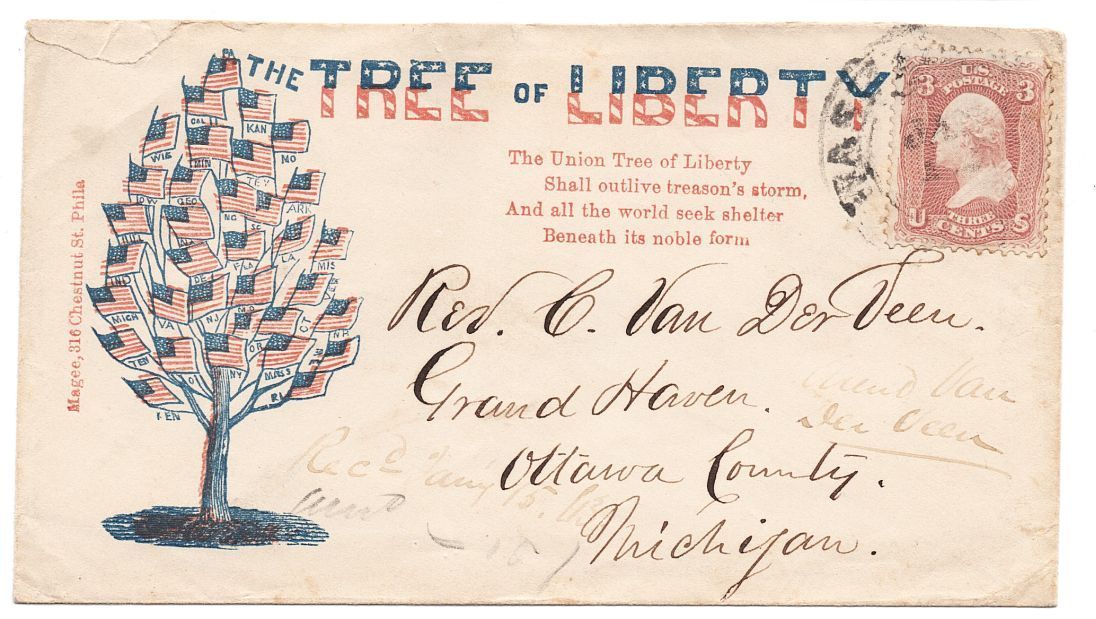 THE TREE OF LIBERTY
The Union Tree of Liberty
Shall outlive treason's storm,
And all the world seek shelter
Beneath its noble form
Magee, 316 Chestnut St. Phila
PA
CAL
KAN
WIS
MIN
MO
TEX
IOW
GEO
NC
ARK
SC
ILL
ALA
FLA
LA
MIS
IND
DE
MD
VER
MICH
VA
NJ
CT
NH
TEN
O
NY
OR
MASS
ME
KEN
RI
WASH
3 US 3
POSTAGE
U THREE S
CENTS
Rev. C. Van Der Veen.
Grand Haven.
Ottawa County.
Michigan.
Arend Van
Der Veen
Recd
15.